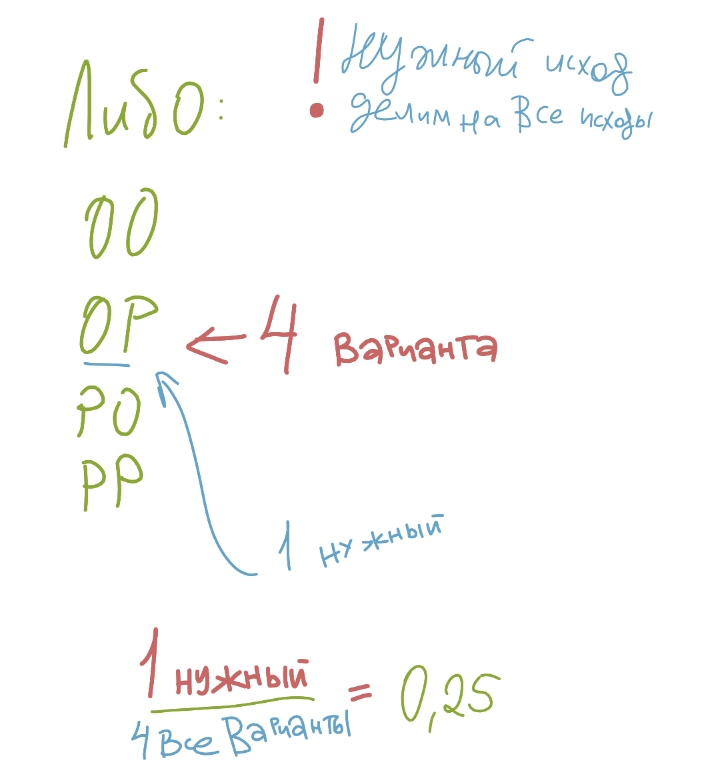 Либо:
! Нужный исход
делим на все исходы
ОО
ОР
← 4 варианта
РО
РР
1 нужный
1 нужный
4 все варианты
= 0,25